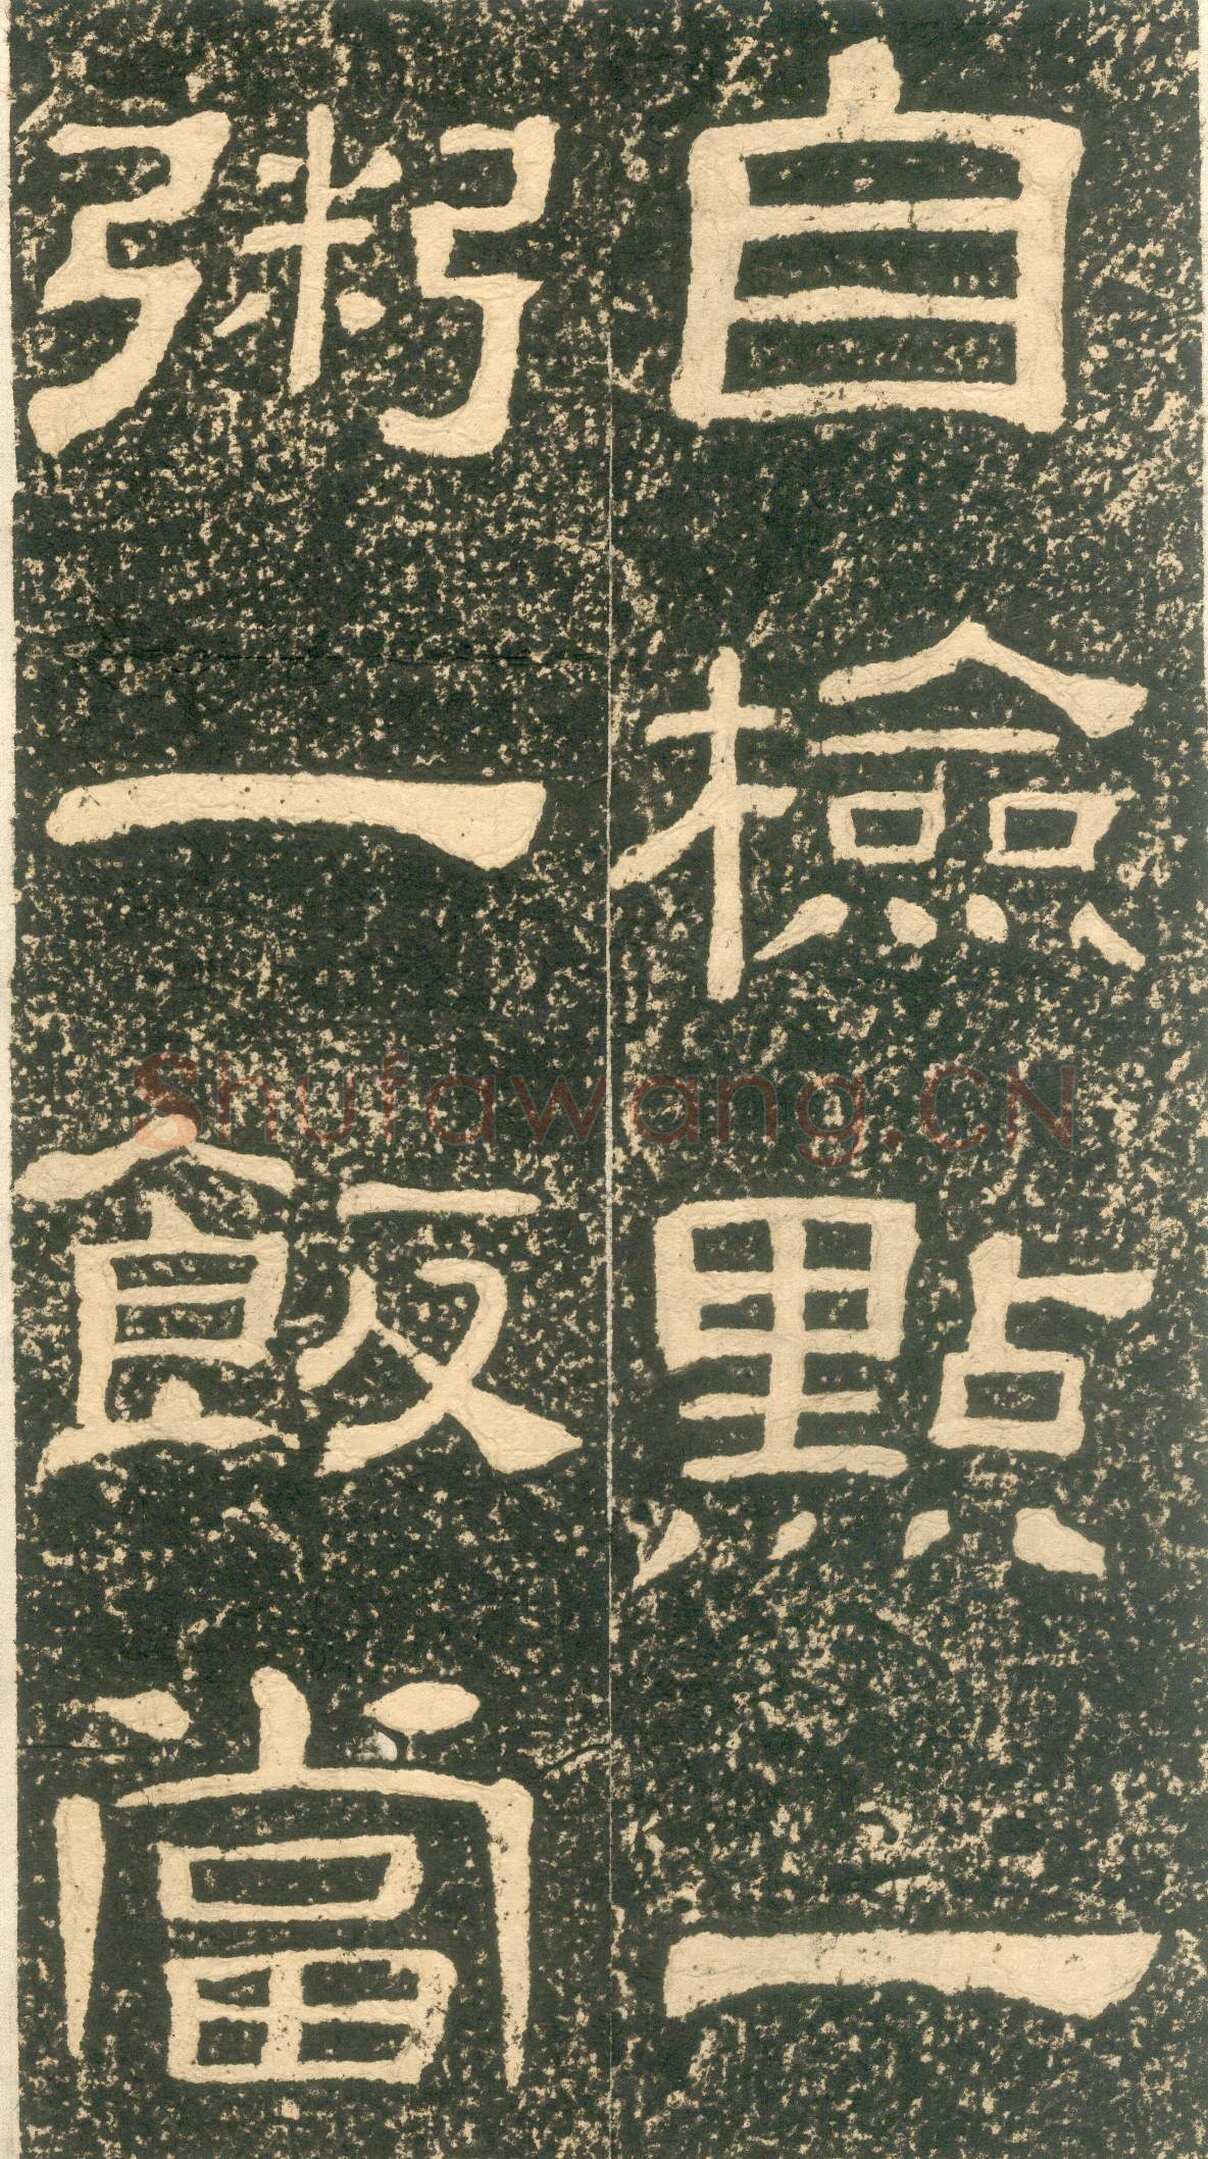 自檢點一
粥一飯當
Shufawang.CN